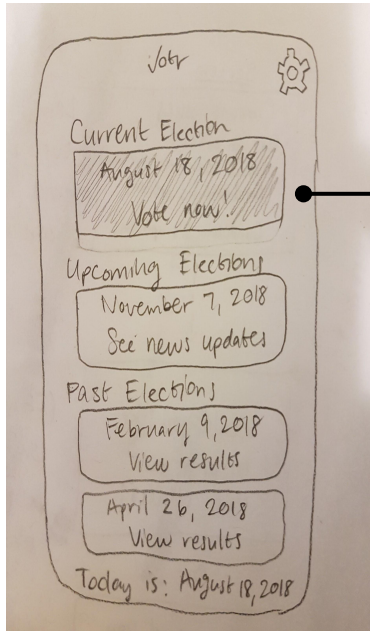 Votr
Current Election
August 18, 2018
Vote now!
Upcoming Elections
November 7, 2018
See news updates
Past Elections
February 9, 2018
View results
April 26, 2018
View results
Today is: August 18, 2018